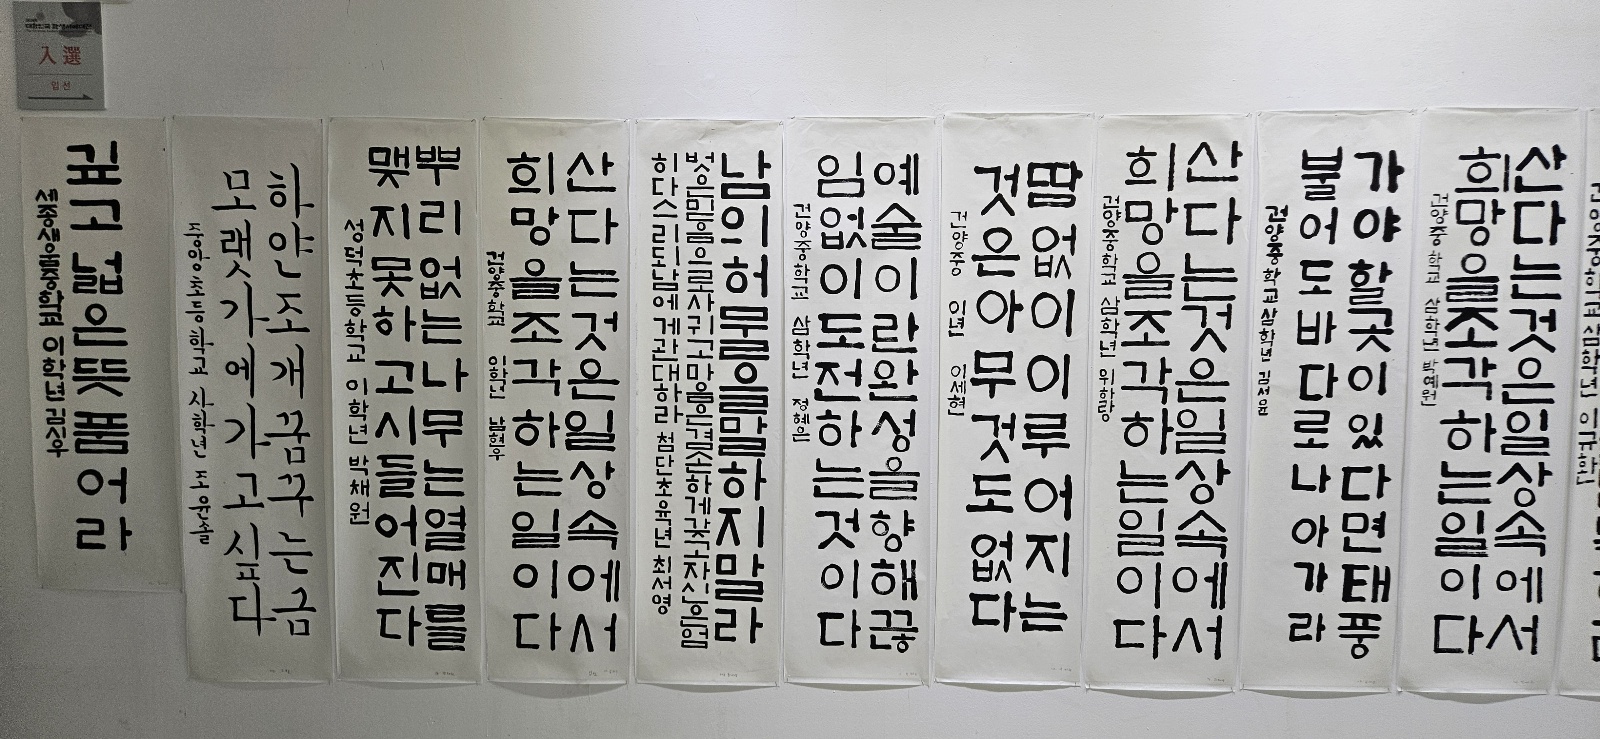 대한민국
入選
입선
깊고 넓은 뜻 품어라
세종생물중학교 이학년 김시우
하얀 조개 꿈꾸는 금
모랫가에 가고 싶다
중앙초등학교 사학년 조윤솔
뿌리 없는 나무는 열매를
맺지 못하고 시들어진다
성덕초등학교 이학년 박채원
산다는 것은 일상 속에서
희망을 조각하는 일이다
건양중학교 일학년 남현우
남의 허물을 말하지 말라
벗은 믿음으로 사귀고 마음은 겸손하게 각 자신은 엄
히 다스리되 남에게 관대하라 첨단초 육년 최서영
예술이란 완성을 향해 끊
임없이 도전하는 것이다
건양중학교 삼학년 정혜은
땀 없이 이루어지는
것은 아무것도 없다
건양중 이년 이세현
산다는 것은 일상 속에서
희망을 조각하는 일이다
건양중학교 삼학년 위하랑
가야 할 곳이 있다면 태풍
불어도 바다로 나아가라
건양중학교 삼학년 김서윤
산다는 것은 일상 속에서
희망을 조각하는 일이다
건양중학교 삼학년 박예원
건양중학교 삼학년 이규한